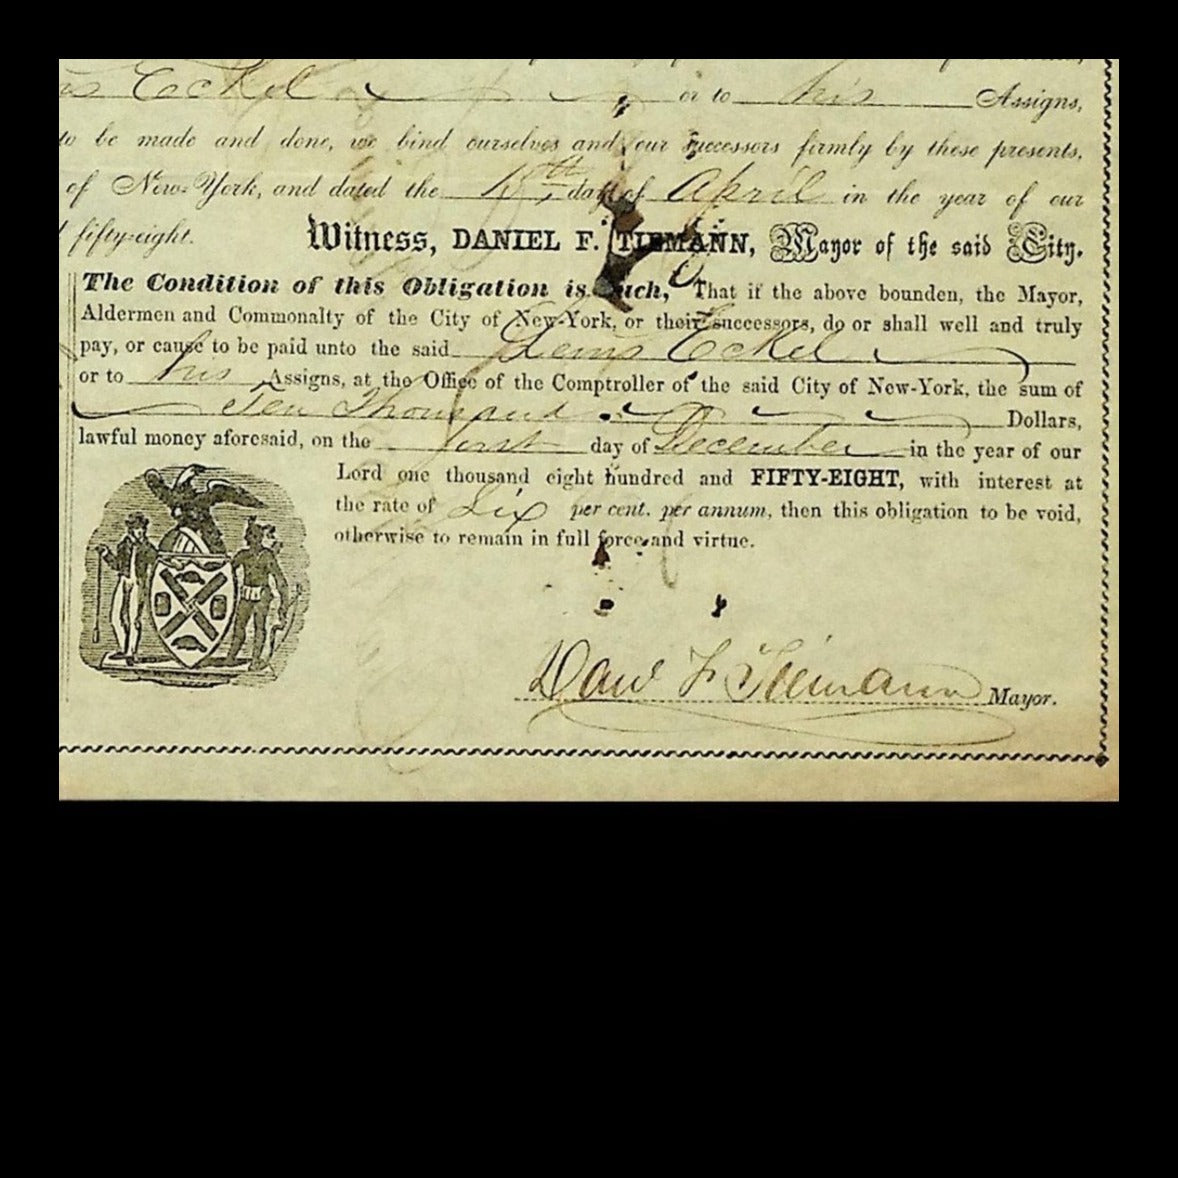 Eckel or to his Assigns,
to be made and done, we bind ourselves and our successors firmly by these presents,
of New-York, and dated the day of April in the year of our
fifty-eight. Witness, DANIEL F. TIEMANN, Mayor of the said City.
The Condition of this Obligation is such, That if the above bounden, the Mayor,
Aldermen and Commonalty of the City of New-York, or their successors, do or shall well and truly
pay, or cause to be paid unto the said Eckel
or to his Assigns, at the Office of the Comptroller of the said City of New-York, the sum of
Ten Thousand Dollars,
lawful money aforesaid, on the first day of December in the year of our
Lord one thousand eight hundred and FIFTY-EIGHT, with interest at
the rate of Six per cent. per annum, then this obligation to be void,
otherwise to remain in full force and virtue.
Danl F. Tiemann Mayor.